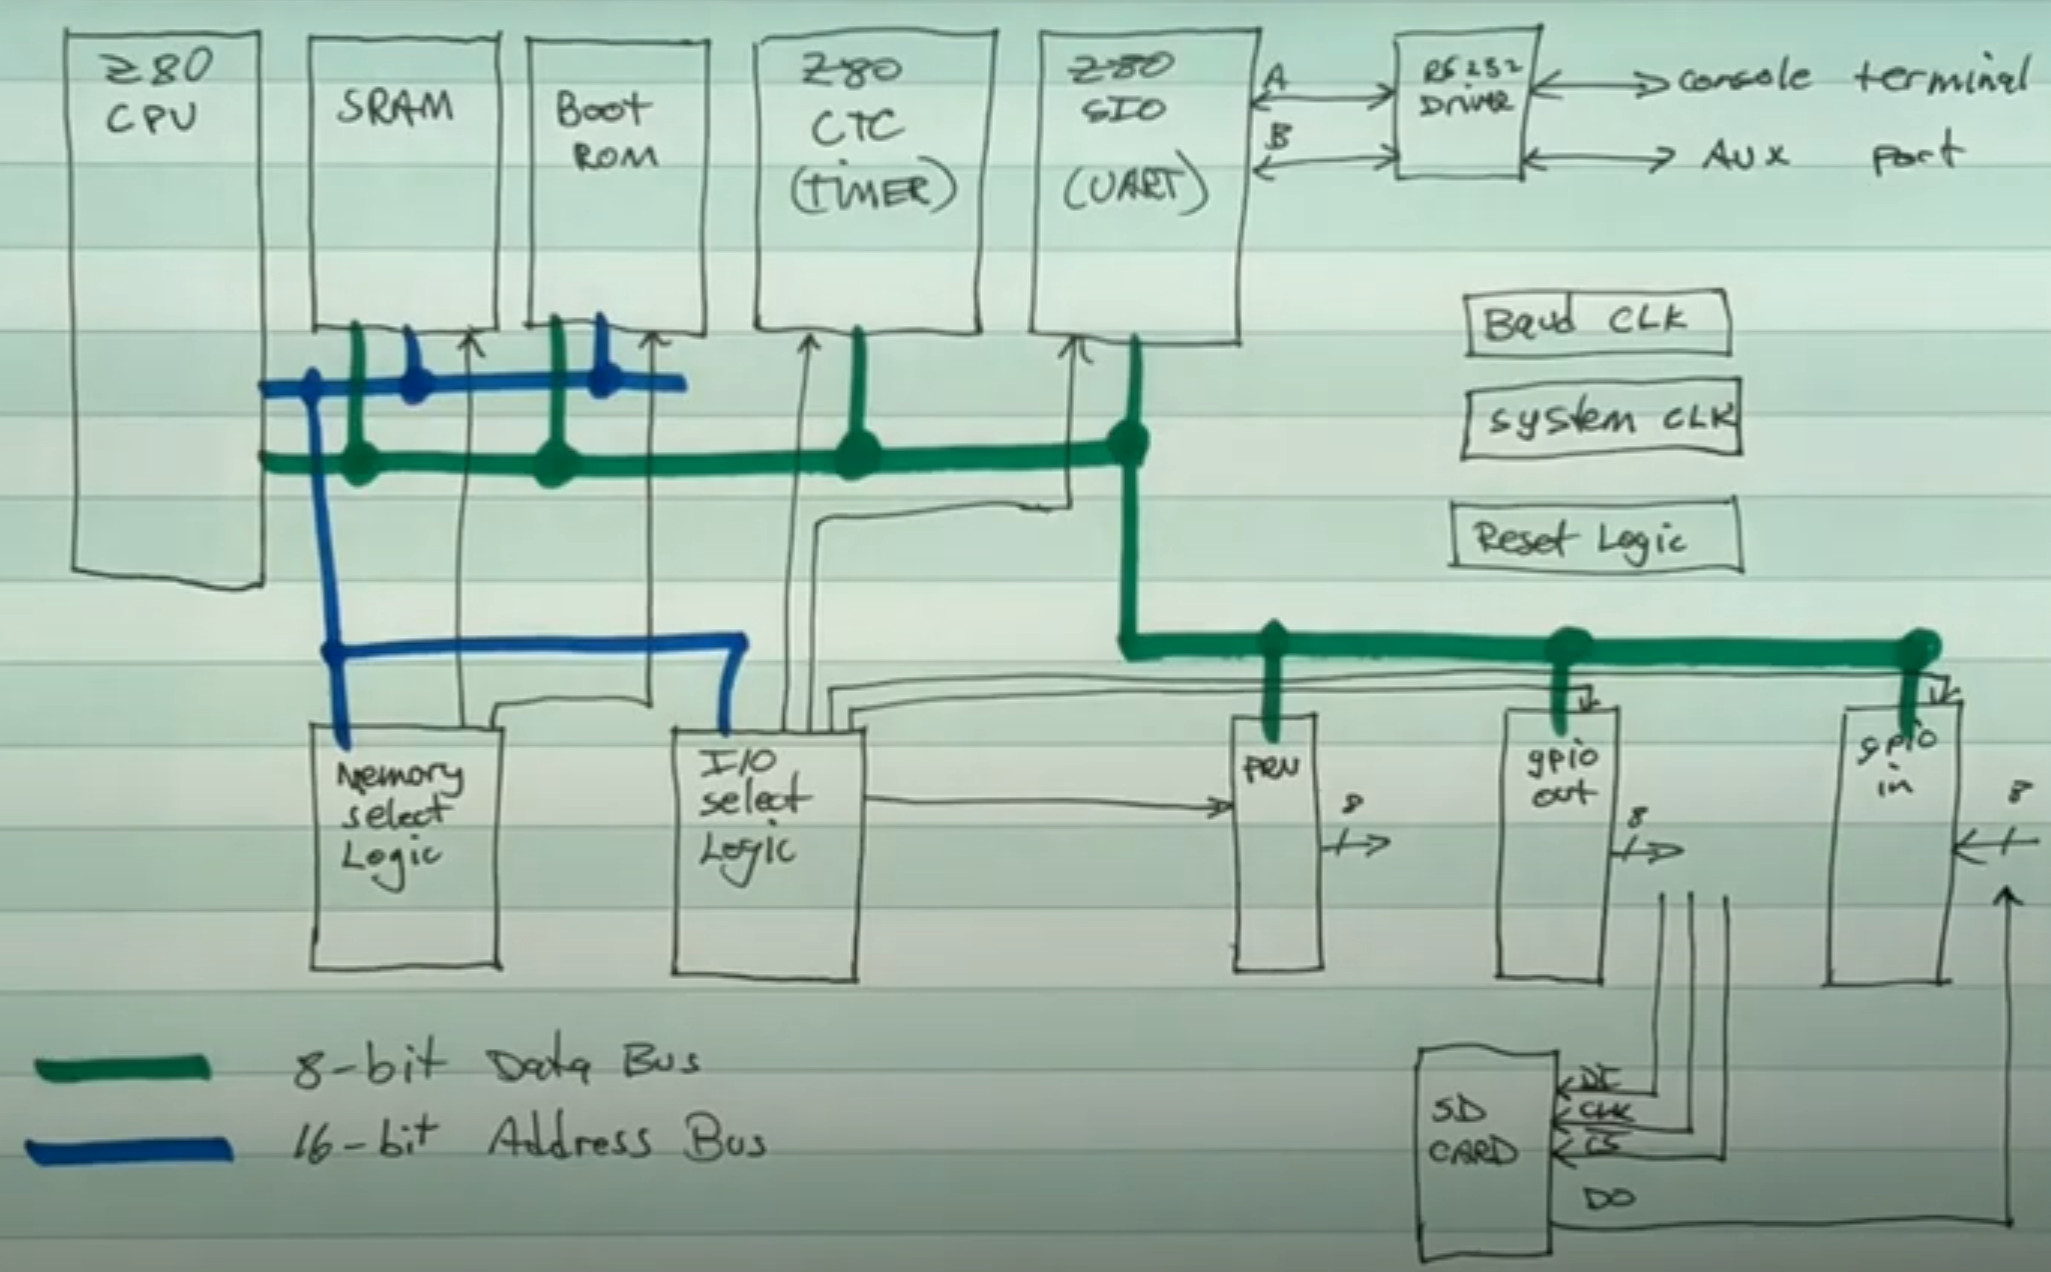 Z80
CPU
SRAM
Boot
ROM
Z80
CTC
(TIMER)
Z80
SIO
(UART)
A
B
RS232
Driver
console terminal
Aux port
Baud CLK
System CLK
Reset Logic
Memory
select
Logic
I/O
select
Logic
PRN
8
gpio
out
8
gpio
in
8
SD
CARD
DI
CLK
CS
DO
8-bit Data Bus
16-bit Address Bus